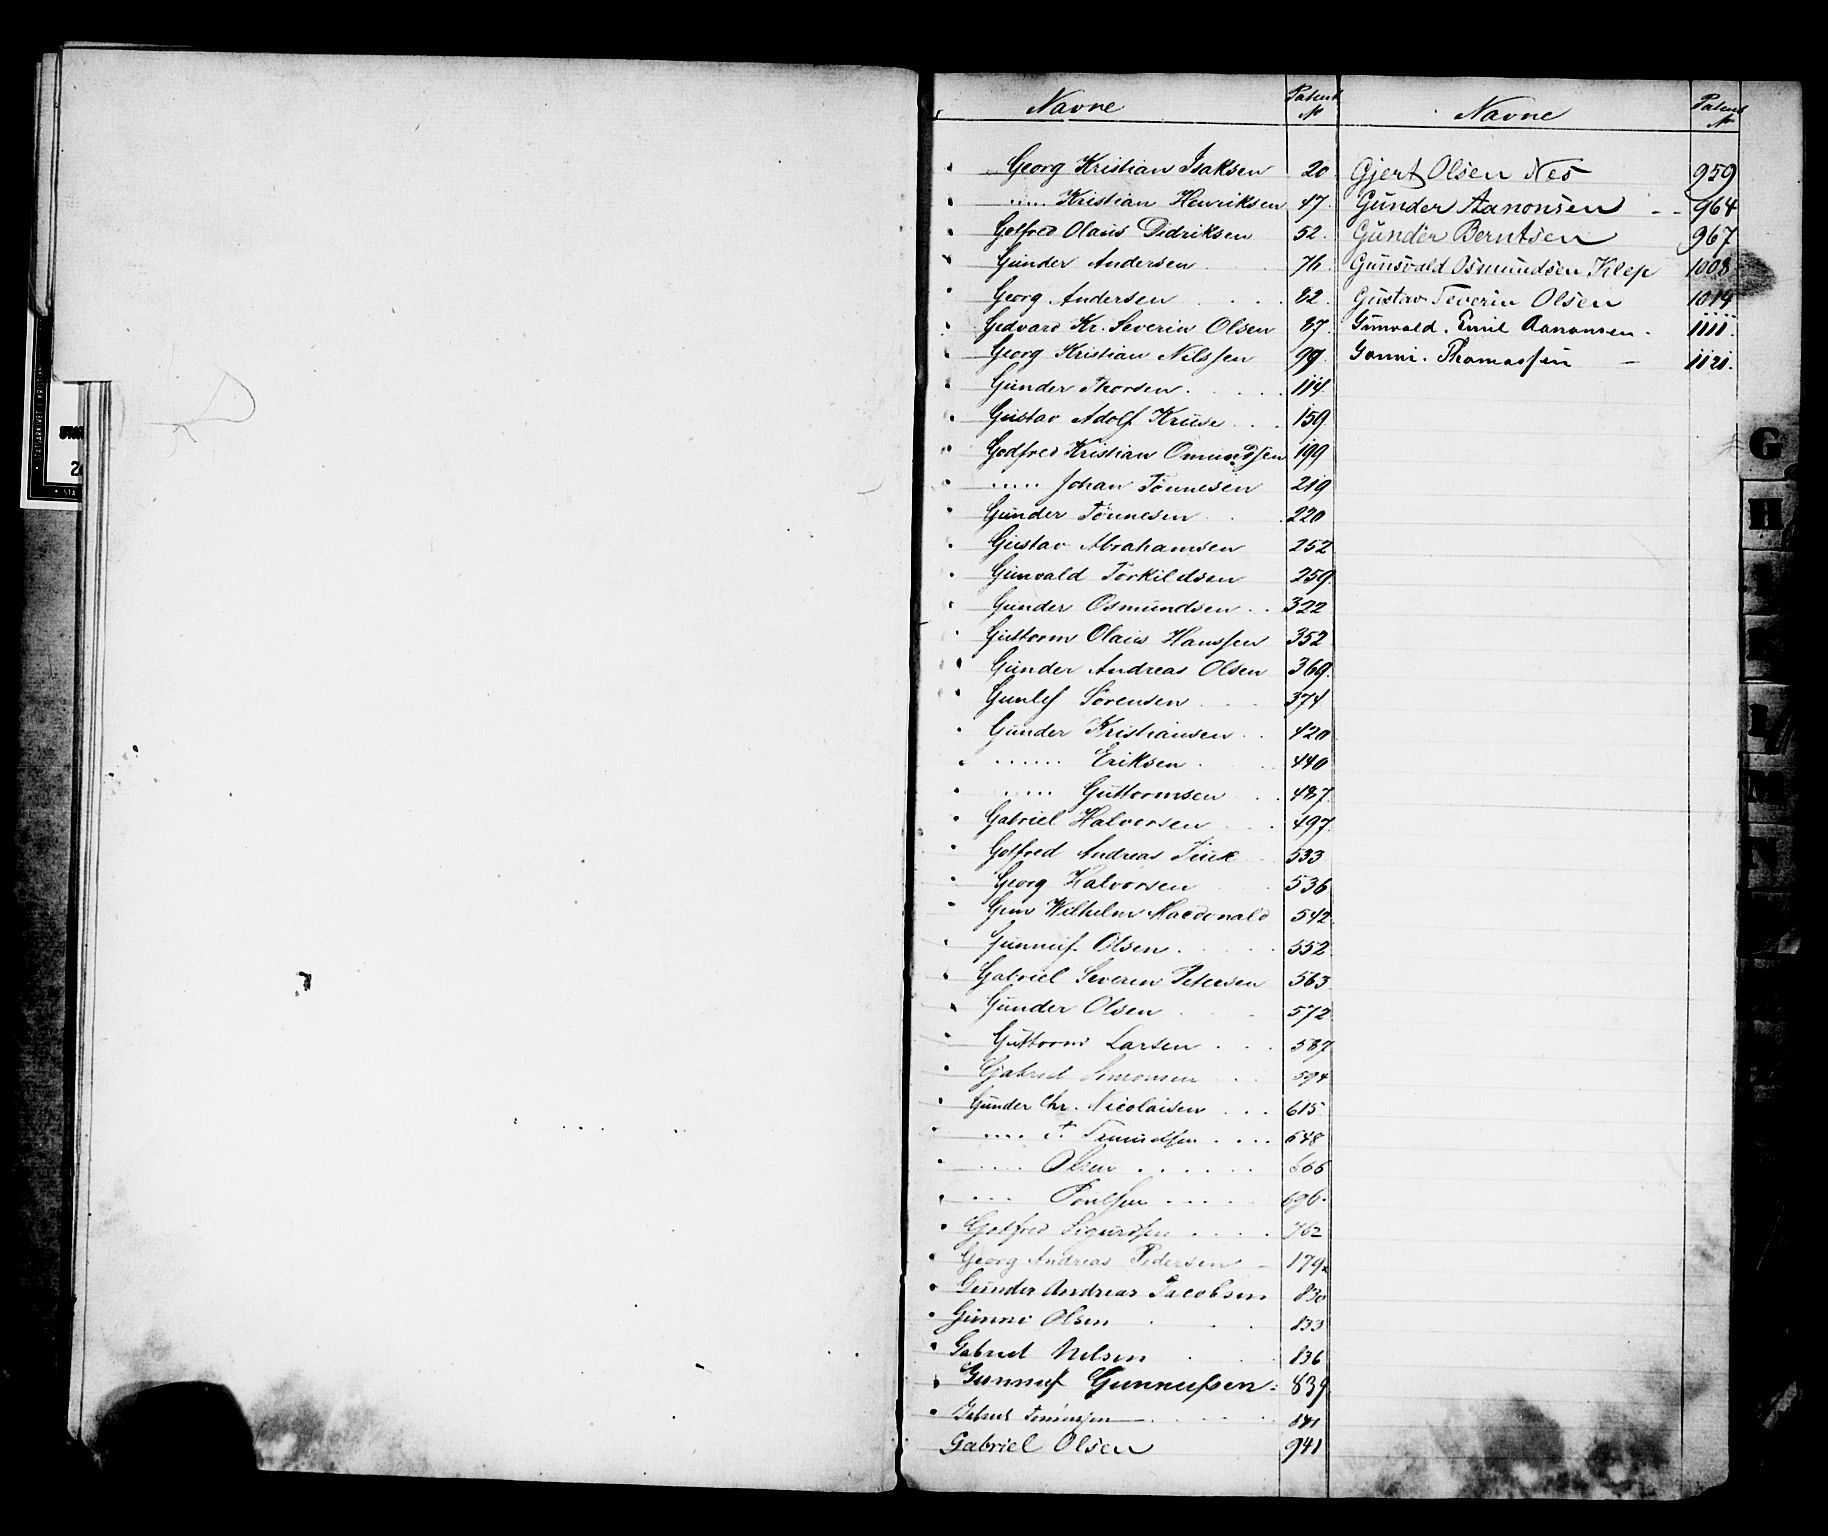 Navne Patent №
Georg Kristian Isaksen 20
..... Kristian Henriksen 47
Gotfred Olaus Didriksen 52.
Gunder Andersen 76.
Georg Andersen . . . . 82.
Gedvard Kr. Severin Olsen 87.
Georg Kristian Nilssen 99.
Gunder Thorsen . . . . 114.
Gustav Adolf Kruse . . . 159
Godfred Kristian Omundsen 199
..... Johan Tønnesen 219
Gunder Tønnesen . . . 220
Gustav Abrahamsen 252
Gunvald Torkildsen 259.
Gunder Osmundsen . . 322
Guttorm Olaus Hanssen 352
Gunder Andreas Olsen 369.
Gunlef Sørensen . . . 374
Gunder Kristiansen . . 420
...... Eriksen . 440
..... Guttormsen . . 487.
Gabriel Halvorsen . . 497.
Gotfred Andreas 533
Georg Halvorsen 536
Wilhelm Macdonald 542
Gunnuf Olsen . . . . 552.
Gabriel Severin Petersen 563
Gunder Olsen . . 572
Guttorm Larsen . . . 587
Gabriel Simonsen . . 594
Gunder Chr. Nicolaisen . . . 615
.... T. . . . . 648
.... Olsen . . . . . . 666
... Poulsen . . . . . 696.
Gotfred Sigurdsen . . . . 762
Georg Andreas Pedersen - 179
Gunder Andreas Jacobsen 830
Gunni Olsen . . . 833
Gabriel Nilsen . . . 836
Gunnuf Gunnufsen . 839.
841
Gabriel Olsen 941
Navne Patent №
Gjert Olsen Nes 959
Gunder Aanonsen - - 964
Gunder Berntsen 967
Gunsvald Osmundsen Klep 1008
Gustav Severin Olsen 1014
Gunvald. Emil Aanonsen. 1111.
Gonni. Thomassen - 1121.
G
H